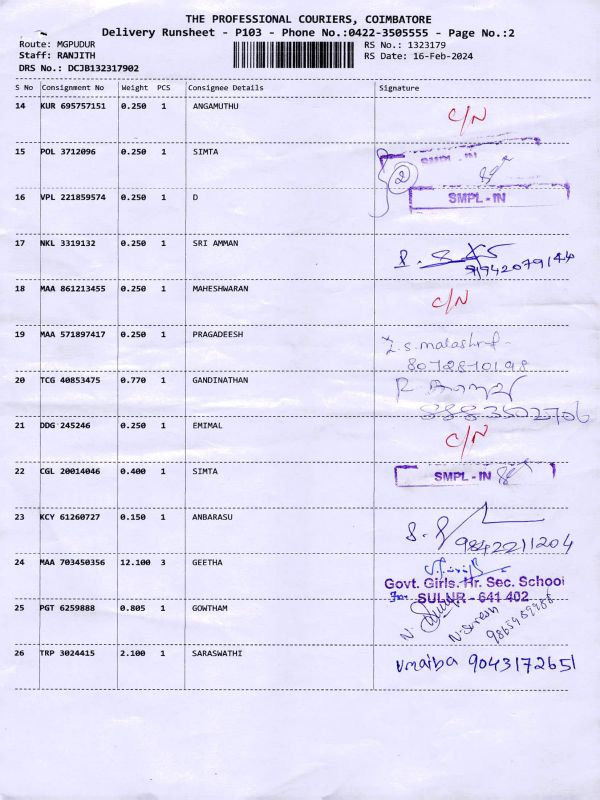 THE PROFESSIONAL COURIERS, COIMBATORE
Delivery Runsheet - P103 - Phone No.:0422-3505555 - Page No.:2
Route: MGPUDUR RS No.: 1323179
Staff: RANJITH RS Date: 16-Feb-2024
DRS No.: DCJB132317902
S No Consignment No Weight PCS Consignee Details Signature
14 KUR 695757151 0.250 1 ANGAMUTHU C/N
15 POL 3712096 0.250 1 SIMTA SMPL - IN
2
16 VPL 221859574 0.250 1 D SMPL - IN
17 NKL 3319132 0.250 1 SRI AMMAN
9942079144
18 MAA 861213455 0.250 1 MAHESHWARAN C/N
19 MAA 571897417 0.250 1 PRAGADEESH
8072870198
20 TCG 40853475 0.770 1 GANDINATHAN
8883502706
21 DDG 245246 0.250 1 EMIMAL C/N
22 CGL 20014046 0.400 1 SIMTA SMPL - IN
23 KCY 61260727 0.150 1 ANBARASU
9842211204
24 MAA 703450356 12.100 3 GEETHA
Govt. Girls. Hr. Sec. School
SULUR - 641 402
25 PGT 6259888 0.805 1 GOWTHAM
N. Suresh
26 TRP 3024415 2.100 1 SARASWATHI
Umaiba 9043172651